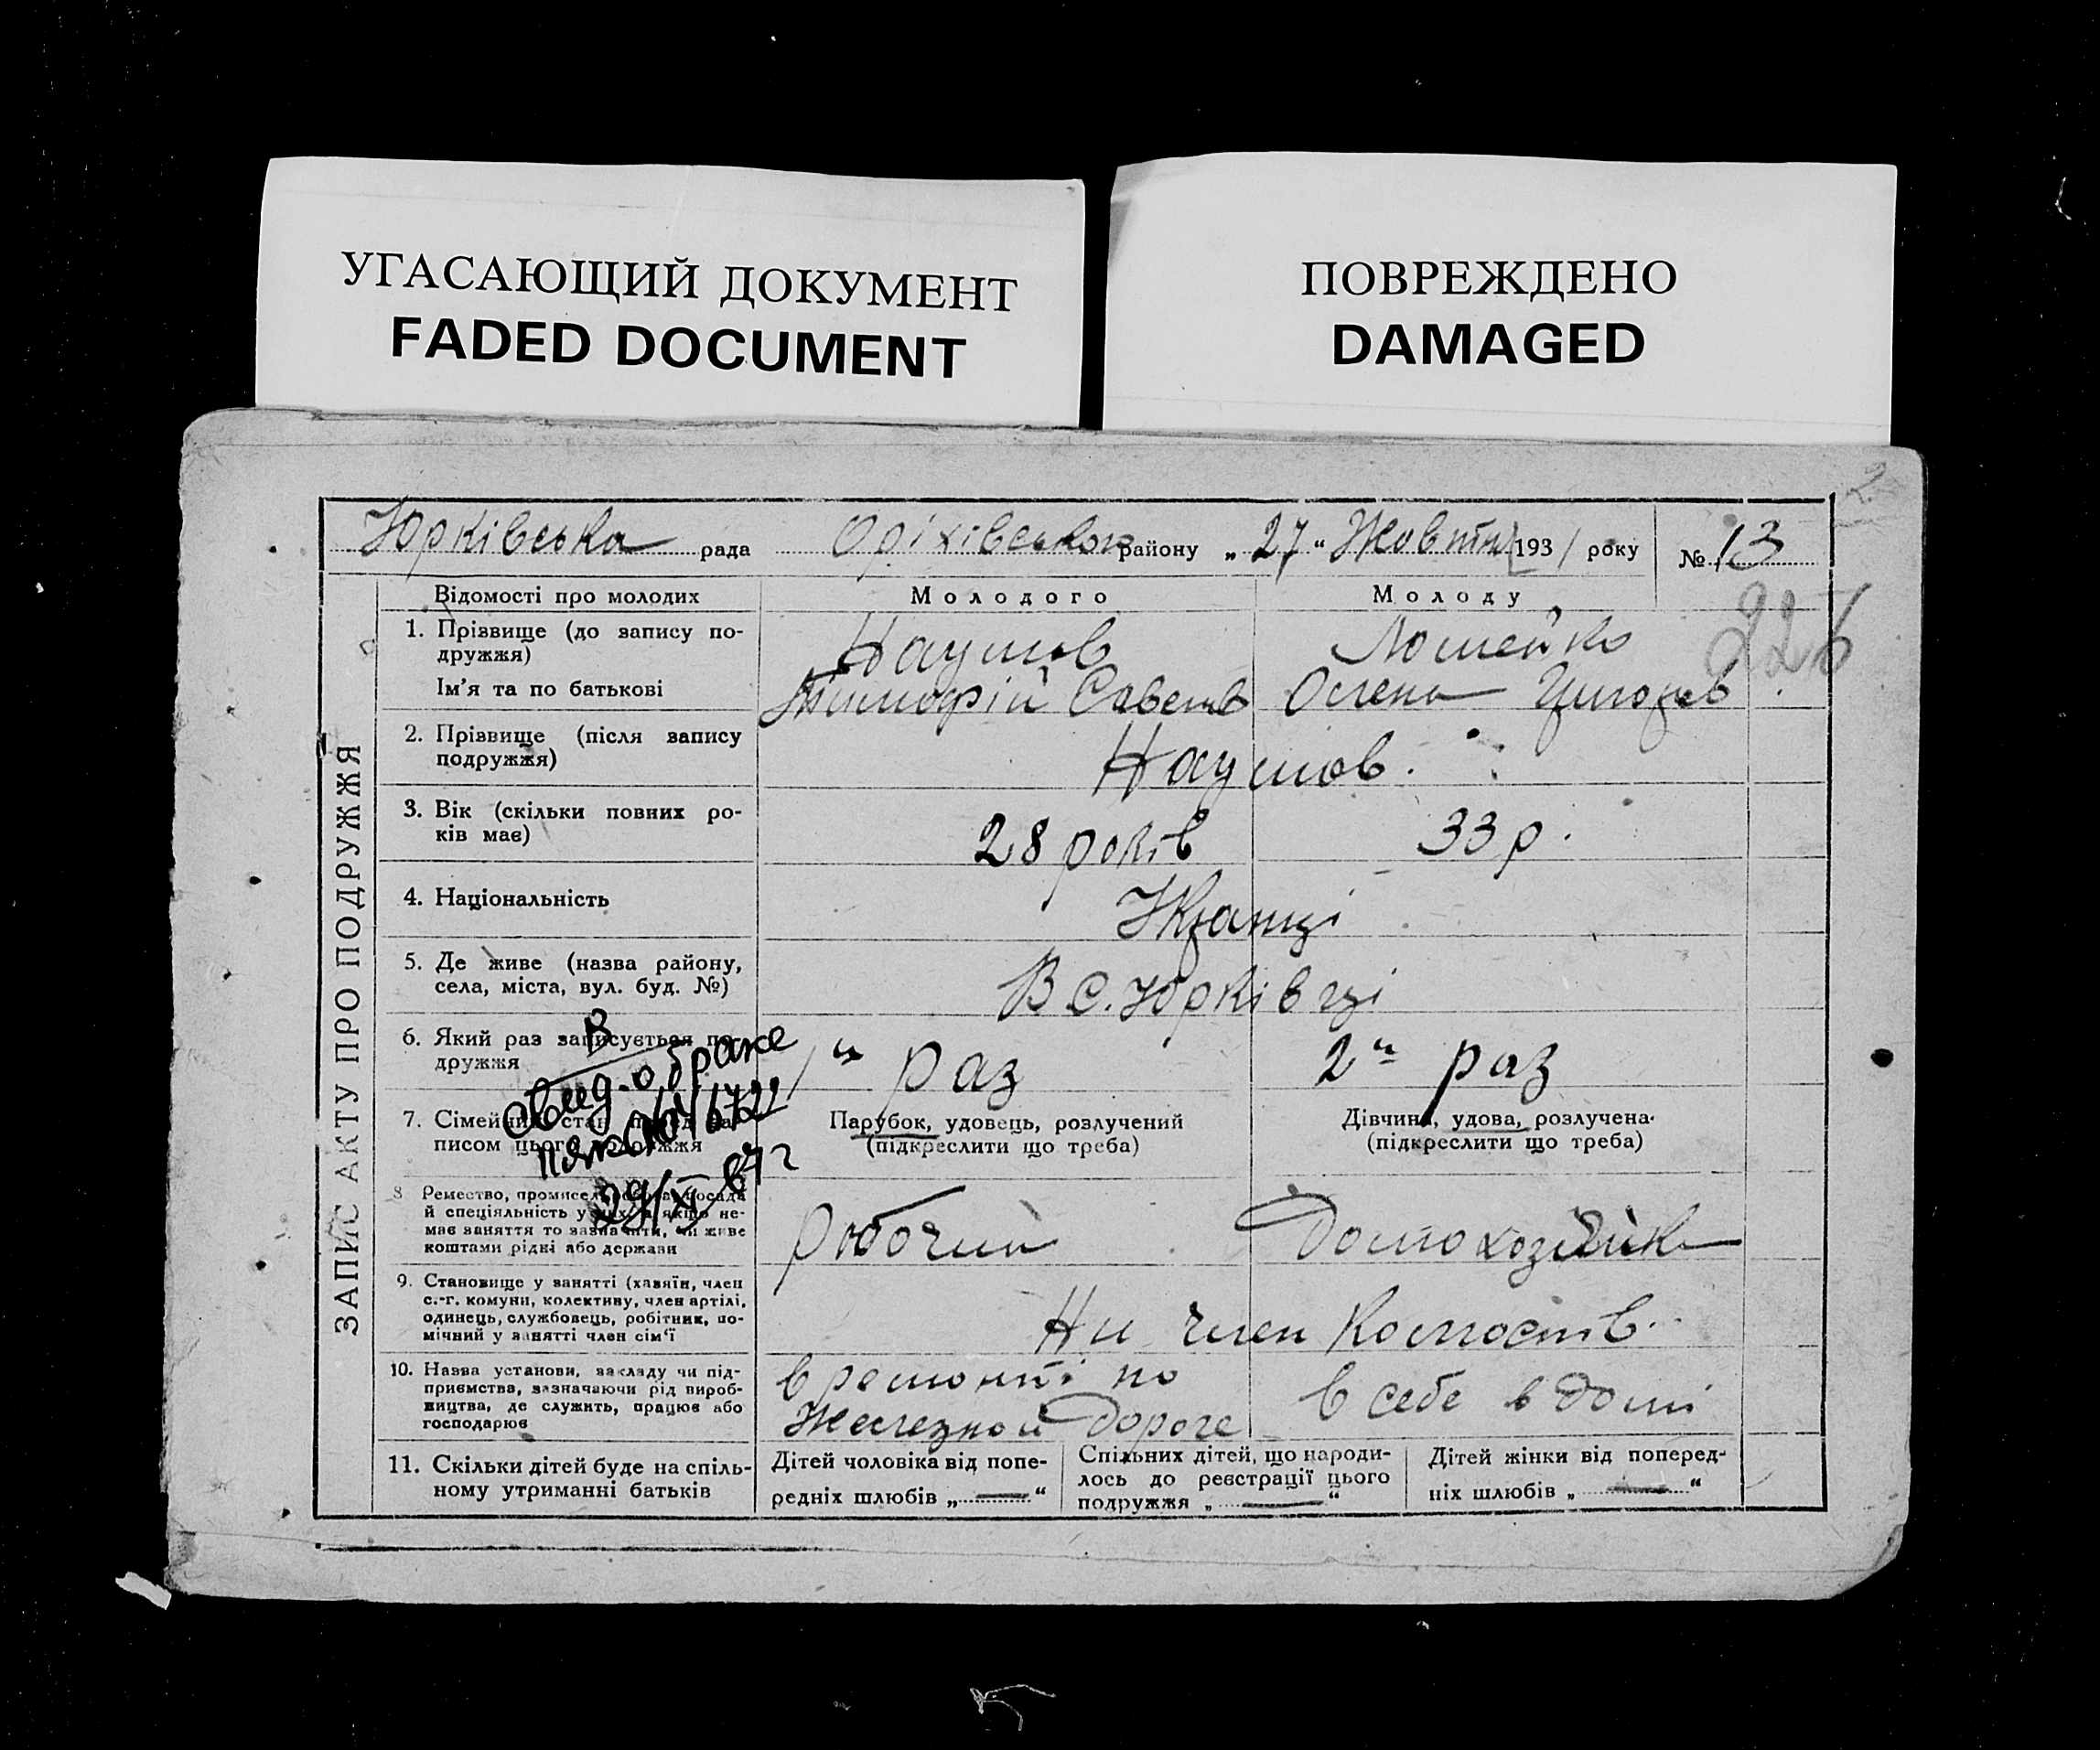 УГАСАЮЩИЙ ДОКУМЕНТ
FADED DOCUMENT
ПОВРЕЖДЕНО
DAMAGED
2
Юрківська рада Оріхівського району „27“ Жовтня 1931 року № 13
226
ЗАПИС АКТУ ПРО ПОДРУЖЖЯ
Відомості про молодих Молодого Молоду
1. Прізвище (до запису по-
дружжя)
Наумов Ломейко
Ім'я та по батькові Тимофій Савет Олена
2. Прізвище (після запису
подружжя)
Наумов.
3. Вік (скільки повних ро-
ків має)
28 років 33 р.
4. Національність
Украінці
5. Де живе (назва району,
села, міста, вул. буд. №)
В с. Юрківці
6. Який раз записується по-
дружжя
1й раз 2й раз
В
свид. о браке
29/XI 67 г
7. Сімейний стан перед за-
писом цього подружжя
Парубок, удовець, розлучений
(підкреслити що треба)
Дівчина, удова, розлучена
(підкреслити що треба)
8 Ремество, промисел, посада
й спеціяльність у них, а якщо не-
має заняття то зазначити, чи живе
коштами рідні або держави
Робочий Домохозяйка
9. Становище у занятті (хазяїн, член
с.-г. комуни, колективу, член артілі,
одинець, службовець, робітник, по-
мічний у занятті член сім'ї
Ни член
10. Назва установи, закладу чи під-
приємства, зазначаючи рід вироб-
ництва, де служить, працює або
господарює
в ремонті по
Железной дороге
в себе в домі
11. Скільки дітей буде на спіль-
ному утриманні батьків
Дітей чоловіка від попе-
редніх шлюбів „—“
Спільних дітей, що народи-
лось до реєстрації цього
подружжя „—“
Дітей жінки від поперед-
ніх шлюбів „—“